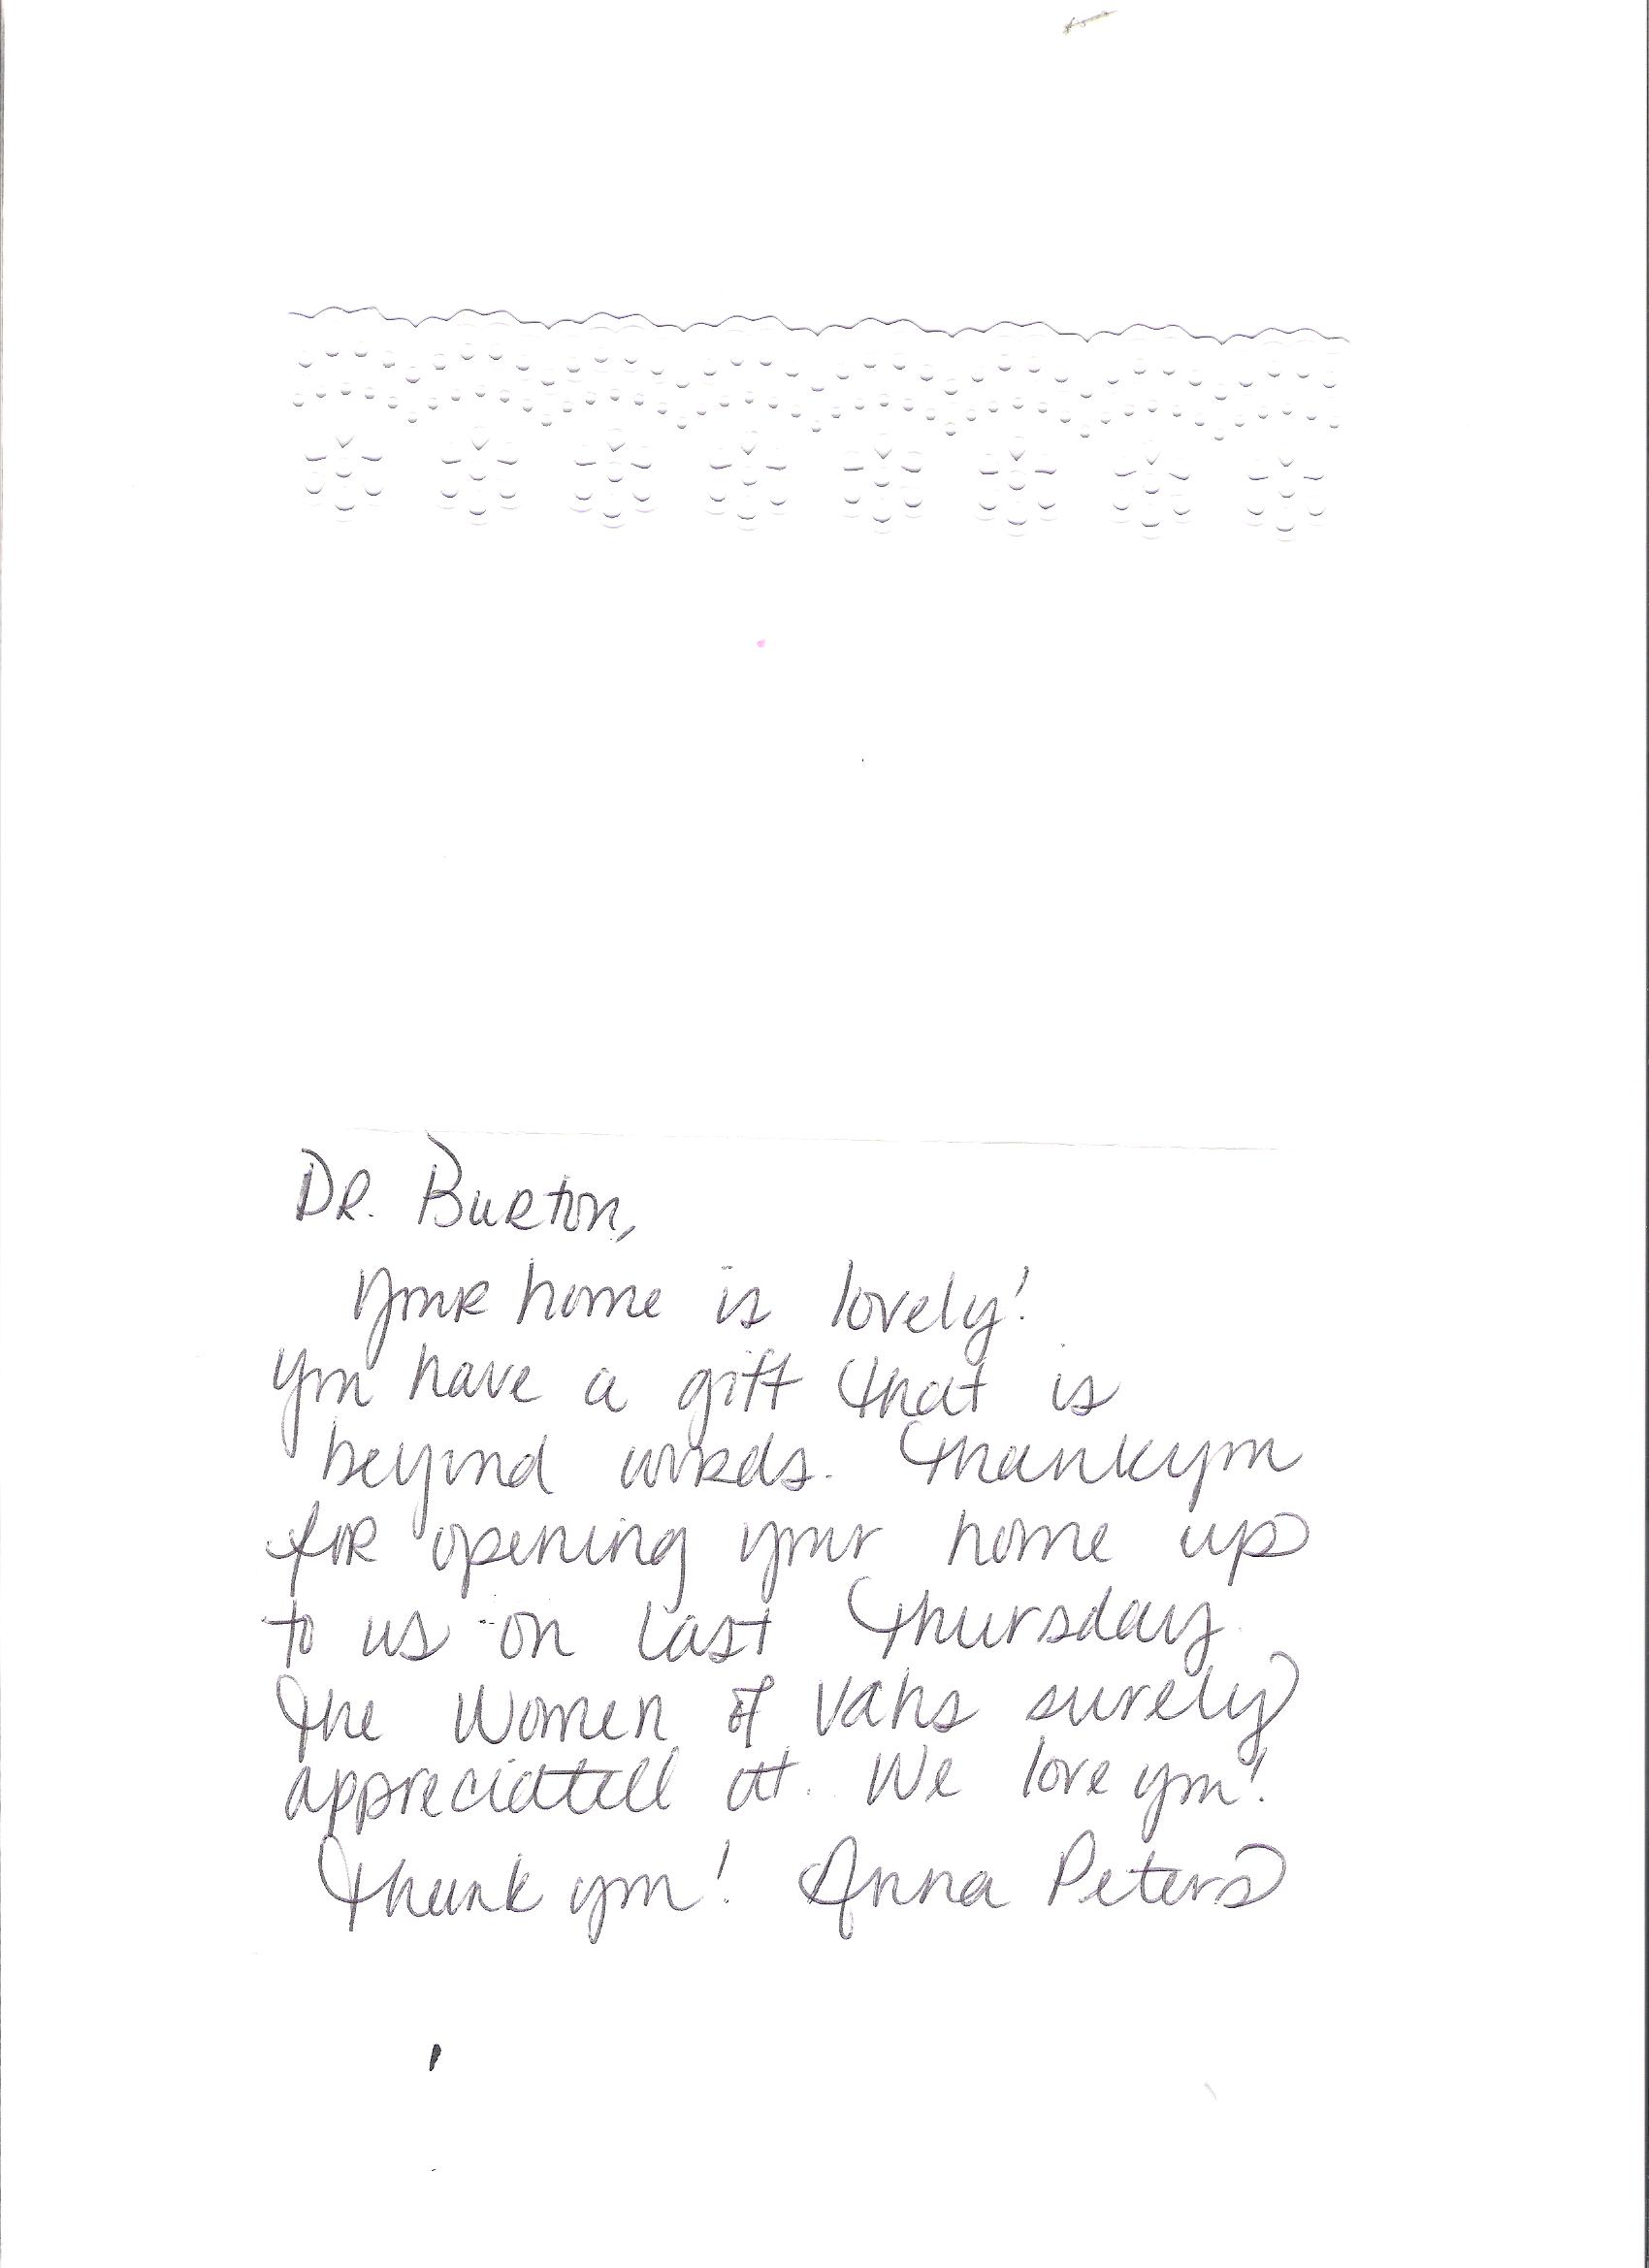 DR. Burton,
Your home is lovely!
you have a gift that is
beyond words. Thankyou
for opening your home up
to us on last Thursday.
The Women of Vahs surely
appreciated it. We love you!
Thank you! Anna Peters